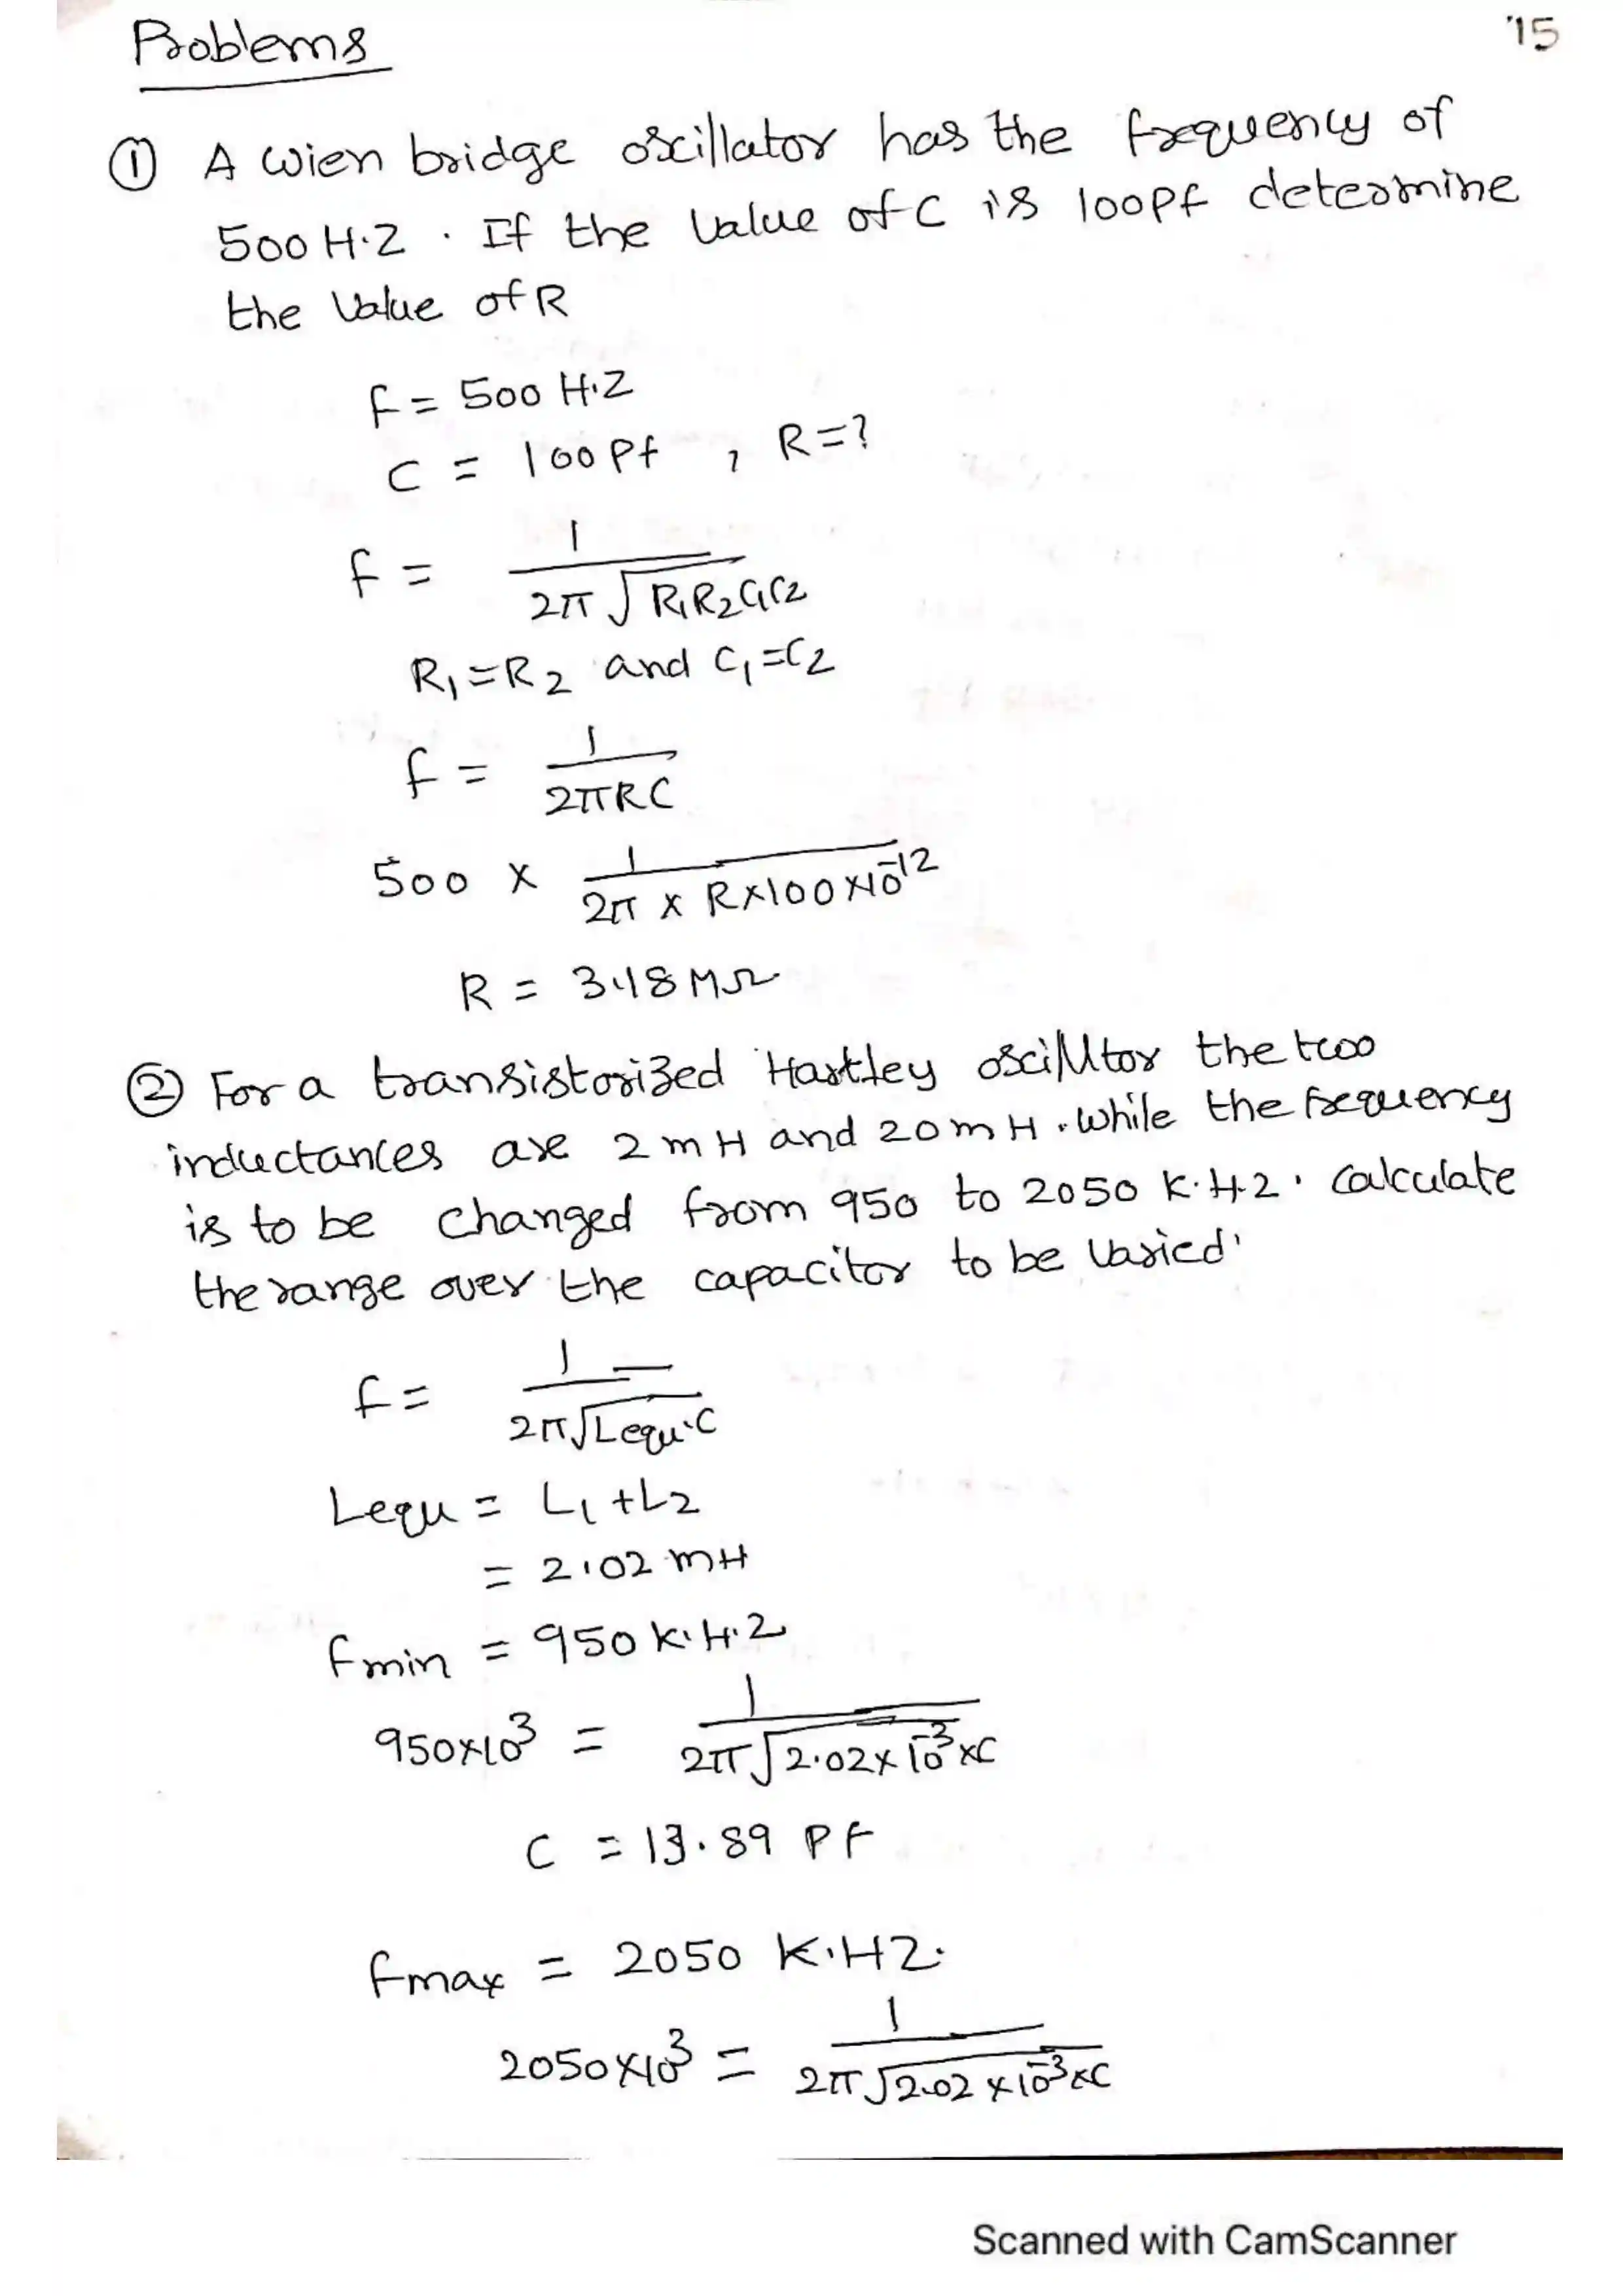 Problems
'15
① A wien bridge oscillator has the frequency of
500 H.Z . If the value of C is 100Pf determine
the value of R
f = 500 H.Z
C = 100 Pf , R = ?
f = 1 / 2π √R1R2C1C2
R1 = R2 and C1 = C2
f = 1 / 2πRC
500 × 1 / 2π × R×100×10^-12
R = 3.18 MΩ
② For a transistorized Hartley oscilltor the two
inductances are 2 mH and 20mH . While the frequency
is to be changed from 950 to 2050 K.H.Z . Calculate
the range over the capacitor to be varied.
f = 1 / 2π√Lequ.C
Lequ = L1 + L2
= 2.02 mH
fmin = 950 K.H.Z
950×10^3 = 1 / 2π√2.02×10^-3×C
C = 13.89 PF
fmax = 2050 K.HZ.
2050×10^3 = 1 / 2π√2.02×10^-3×C
Scanned with CamScanner